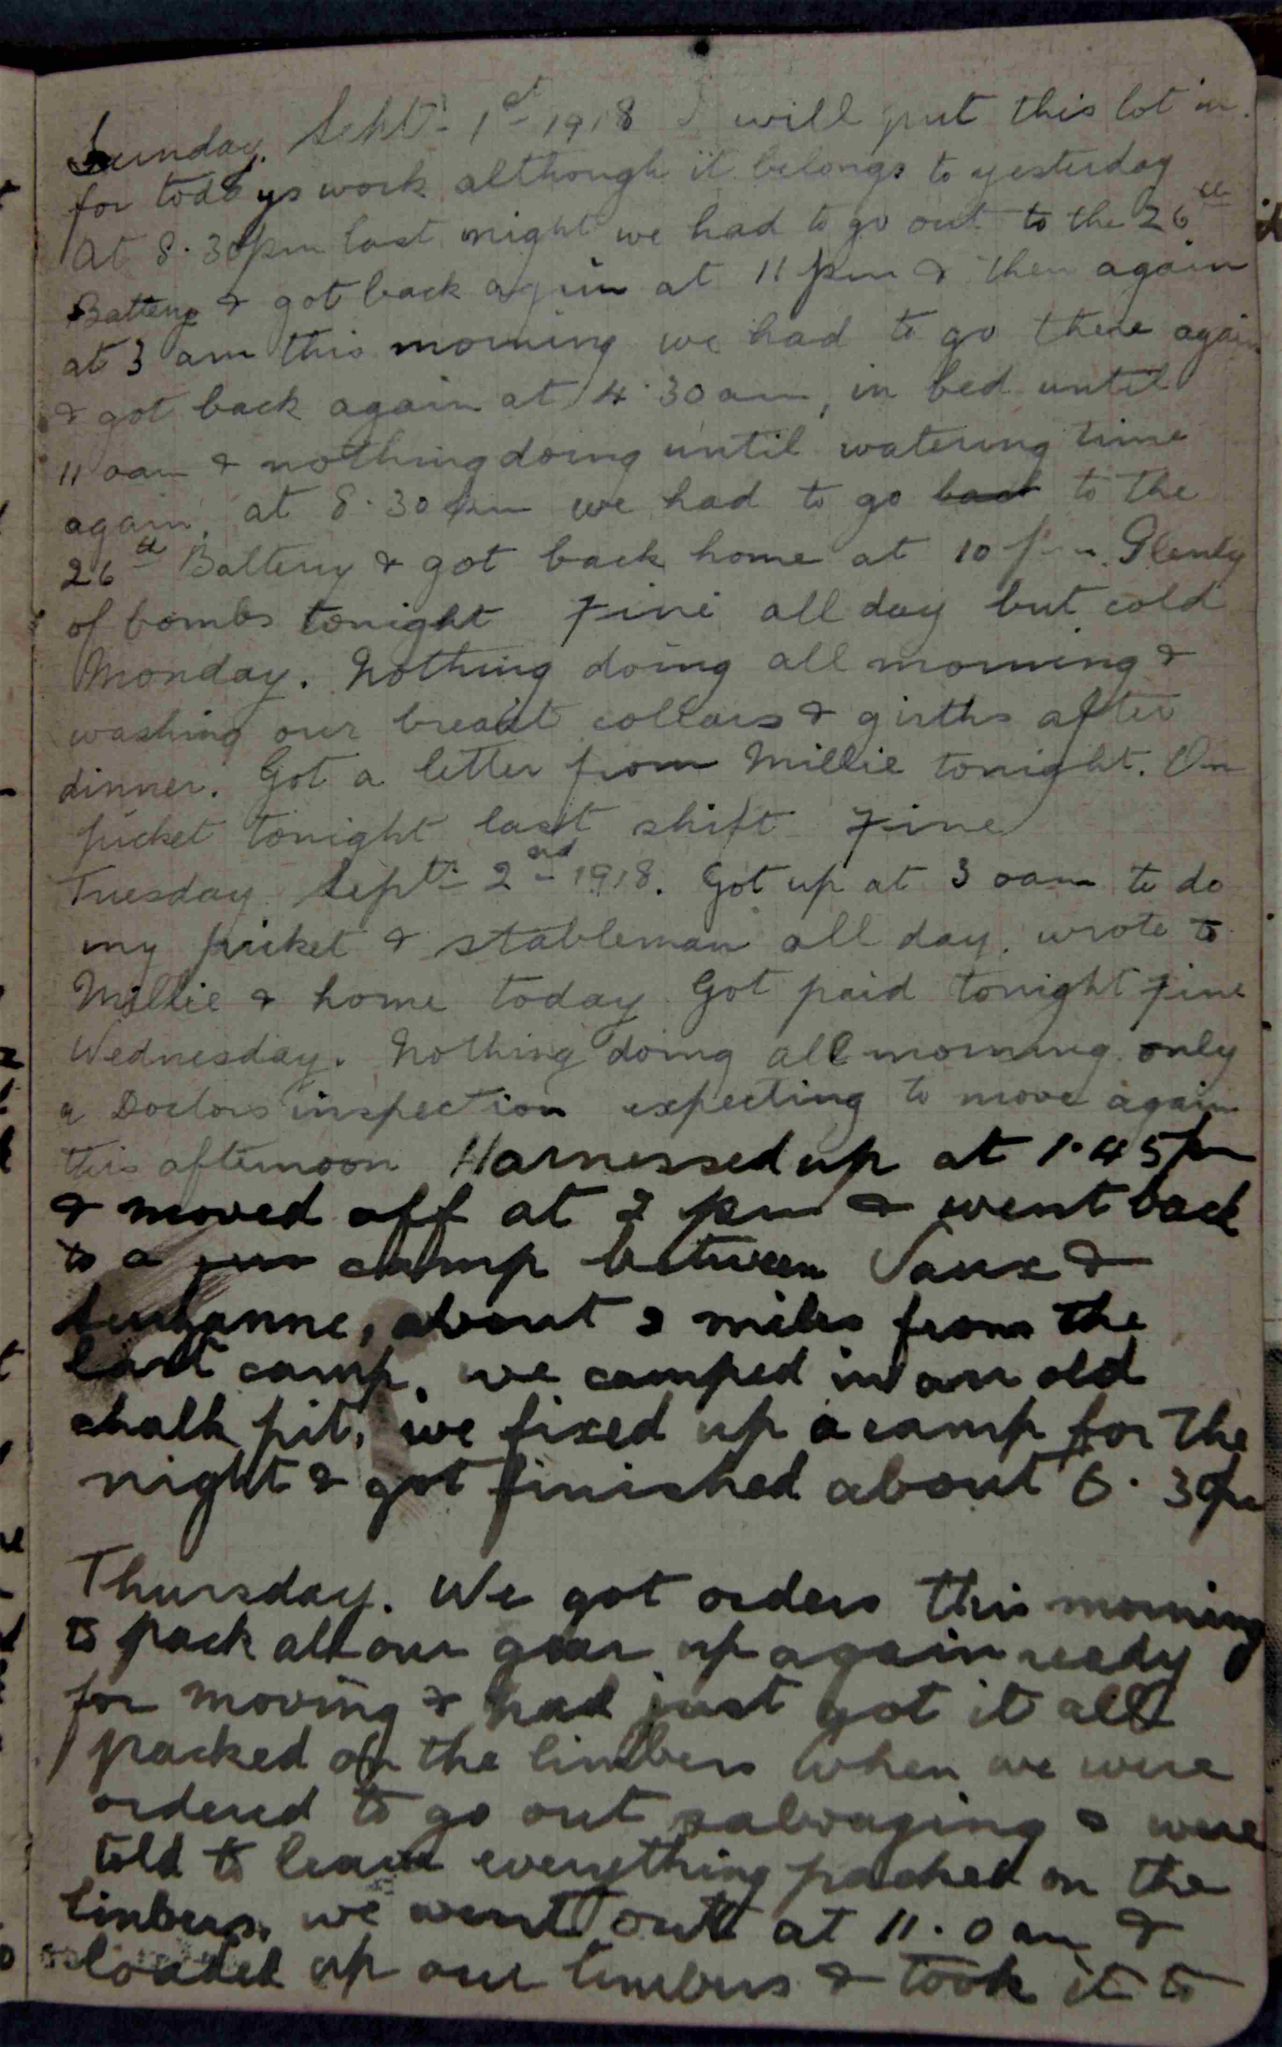 Sunday. Sept:- 1st 1918 I will put this lot in.
for todays work although it belongs to yesterday
At 8.30pm last night we had to go out to the 26th
Battery & got back again at 11 pm & then again
at 3 am this morning we had to go there again
& got back again at 4.30am, in bed until
11 oam & nothing doing until watering time
again. at 8.30pm we had to go back to the
26th Battery & got back home at 10 pm. Plenty
of bombs tonight Fine all day but cold
Monday. Nothing doing all morning &
washing our breast collars & girths after
dinner. Got a letter from Millie tonight. On
picket tonight last shift Fine
Tuesday Sept:- 2nd 1918. Got up at 3 oam to do
my picket & stableman all day. wrote to
Millie & home today Got paid tonight Fine
Wednesday. Nothing doing all morning only
a Doctors inspection expecting to move again
this afternoon Harnessed up at 1.45pm
& moved off at 2 pm & went back
to a camp between Vaux &
about 2 miles from the
last camp. we camped in an old
chalk pit, we fixed up a camp for the
night & got finished about 6.30pm
Thursday. We got orders this morning
to pack all our gear up again ready
for moving & had just got it all
packed on the limbers when we were
ordered to go out salvaging & were
told to leave everything packed on the
limbers. we went out at 11.0am &
loaded up our limbers & took it to